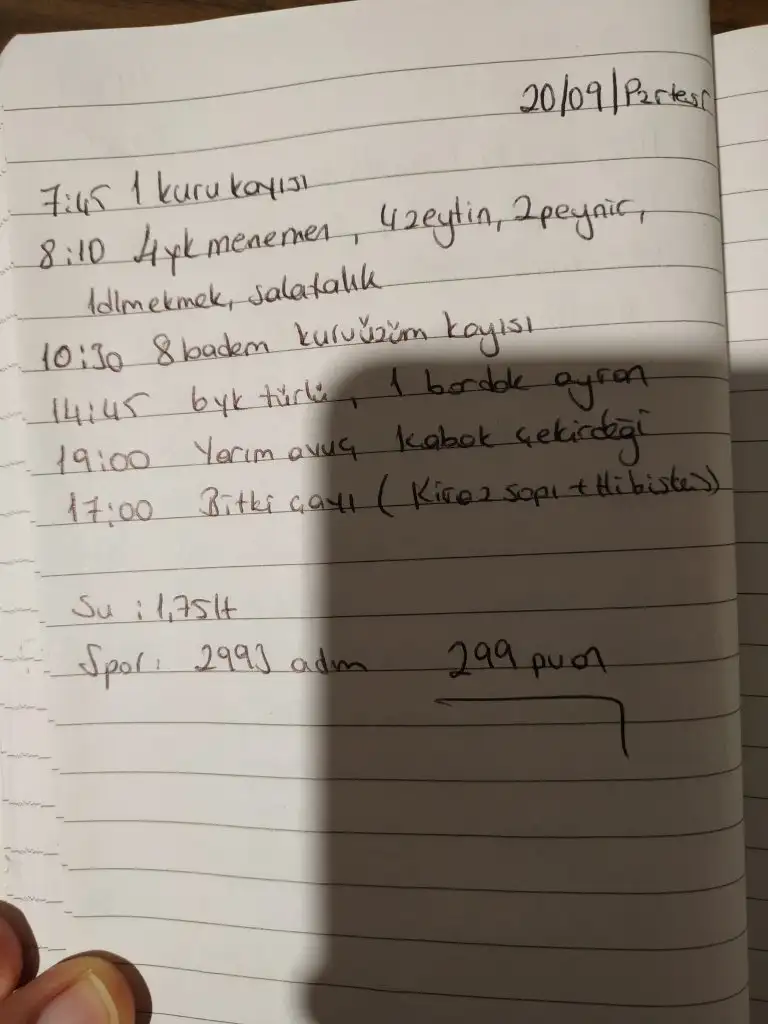 20/09/Pzrtesi
7:45 1 kuru kayısı
8:10 4yk menemen, 4zeytin, 2peynir,
1dlmekmek, salatalık
10:30 8 badem kuruüzüm kayısı
14:45 6yk türlü, 1 bardak ayran
19:00 Yarım avuç kabak çekirdeği
17:00 Bitki çayı (Kiraz sapı + Hibisküs)
Su : 1,75lt
Spor: 2993 adım 299 puan